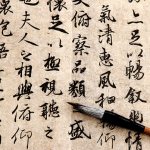 足以暢敘幽情
氣清惠風和暢仰
俯察品類之盛
懷足以極視聽之
夫人之相與俯仰